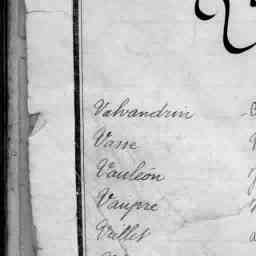 Valvandrin
Vasse
Vauléon
Vaupre
Vallet